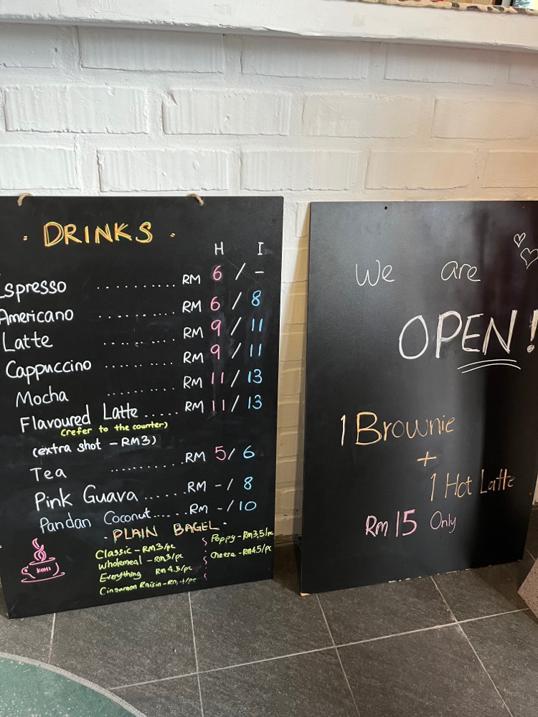 · DRINKS ·
H I
Espresso .......... RM 6 / -
Americano .......... RM 6 / 8
Latte .......... RM 9 / 11
Cappuccino .......... RM 9 / 11
Mocha .......... RM 11 / 13
Flavoured Latte ..... RM 11 / 13
(refer to the counter)
(extra shot - RM3)
Tea .......... RM 5 / 6
Pink Guava ...... RM - / 8
Pandan Coconut ..... RM - / 10
· PLAIN BAGEL ·
Classic - RM3/pc
Wholemeal - RM3/pc
Everything RM4.5/pc
Cinnamon Raisin
Poppy - RM3,5/pc
Cheese - RM4.5/pc
We are
OPEN!
1 Brownie
+
1 Hot Latte
Rm 15 Only